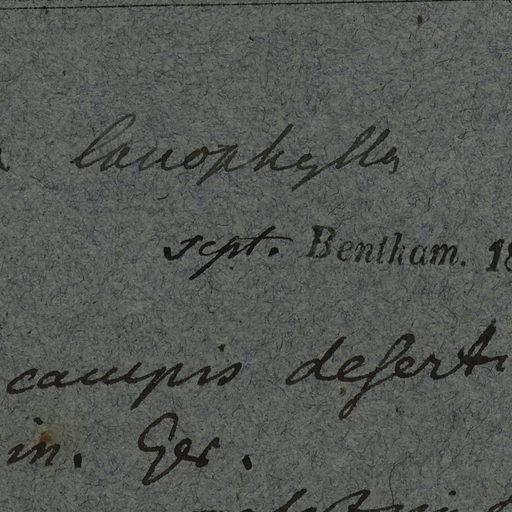 lanophylla
sept. Bentham. 18
campis deserti
in. Ges.